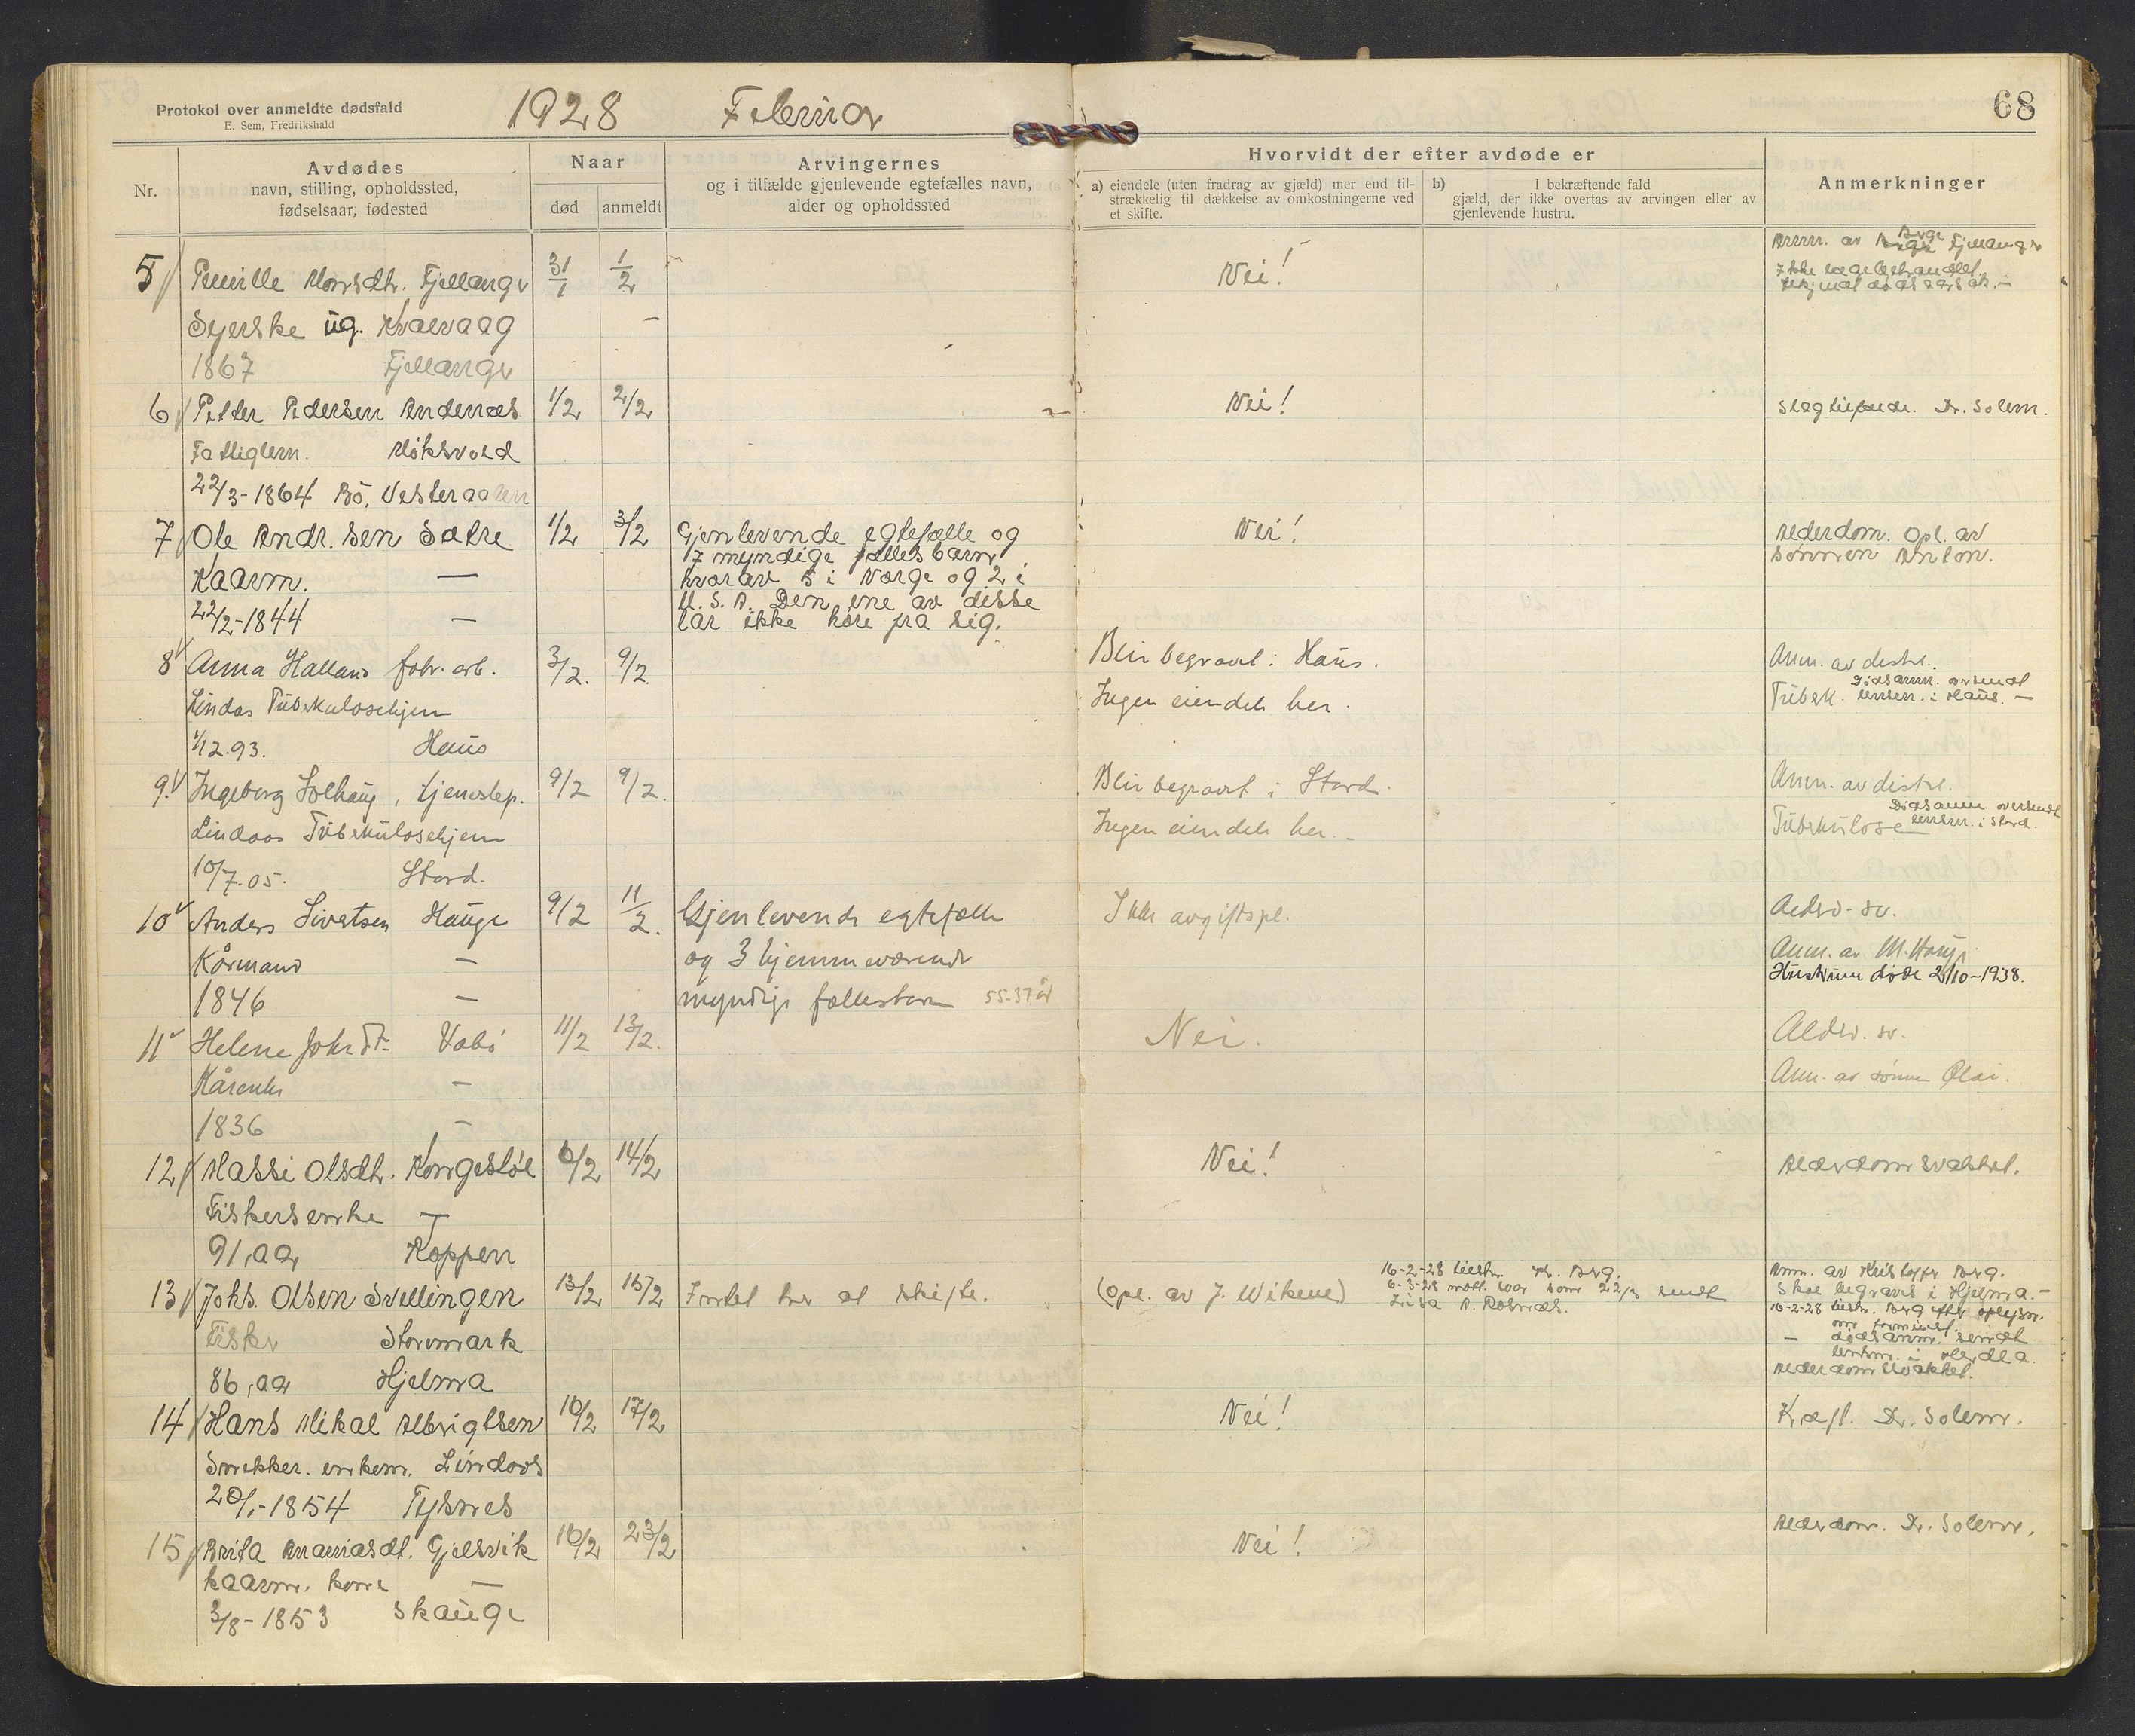 Protokol over anmeldte dødsfald
E. Sem, Fredrikshald
1928 Februar
68
Nr.
Avdødes
navn, stilling, opholdssted,
fødselsaar, fødested
Naar
død
anmeldt
Arvingernes
og i tilfælde gjenlevende egtefælles navn,
alder og opholdssted
Hvorvidt der efter avdøde er
a) eiendele (uten fradrag av gjæld) mer end til-
strækkelig til dækkelse av omkostningerne ved
et skifte.
b) I bekræftende fald
gjæld, der ikke overtas av arvingen eller av
gjenlevende hustru.
Anmerkninger
5 Pernille Monsdtr. Fjellanger 31/1 1/2 Nei! Anm. av Fjellanger
Syerske ug. Kvalvaag Ikke lægebehandlet.
1867 Fjellanger dødsårsak.-
6 Petter Pedersen Andenæs 1/2 2/2 Nei! Slagtilfælde. Dr. Solem.
Fattiglem. Moksvold
22/3-1864 Bö, Vesteraalen
7 Ole Andr.sen Sætre 1/2 3/2 Gjenlevende egtefælle og Nei! Alderdom. Opl. av
7 myndige fælles barn sönnen Anton.
Kaarm. — hvorav 5 i Norge og 2 i
22/2-1844 — U.S.A. Den ene av disse
lar ikke höre fra sig.
8 Anna Halland fabr. arb. 3/2. 9/2. Blir begravet i Haus. Anm. av bestyr.
Dødsanm. oversendt
Lindås Tuberkulosehjem Ingen eiendele her. Tuberk. lensm. i Haus. —
1/12.93. Haus
9. Ingeborg Solhaug, tjenestep. 9/2 9/2. Blir begravet i Stord. Anm. av bestyr.
Dødsanm. oversendt
Lindaas Tuberkulosehjem Ingen eiendele her.- Tuberkulose lensm. i Stord.
10/7.05. Stord.
10 Anders Sivertsen Hauge 9/2 11/2. Gjenlevende egtefælle Ikke avgiftspl. Alders-sv.
Kårmand — og 3 hjemmeværende Anm. av M. Hauge
Hustruen døde 2/10-1938.
1846 — myndige fællesbarn 55-37 år
11 Helene Johsdt. Vabö 11/2 13/2. Nei. Alders. sv.
Kårenke — Anm. av sønnen Olai.
1836 —
12 Massi Olsdtr. Kongestöl 6/2 14/2 Nei! Alderdomsvakhet.
Fiskersenke —
91, aar Koppen
13 Johs. Olsen Svellingen 13/2 15/2 Intet her at skifte. (Opl. av J. Wikene) 16-2-28 tilskr. Kr. Berg.
6-3-28 mott. svar som 22/3 sendt
Anm. av Kristoffer Berg.
Skal begraves i Hjelma.-
16-2-28 tilskr. Berg efter oplysn.
om formuesf.
Fisker Stormark — dødsanm. sendt
lensm. i Herdla.
86, aar Hjelma Alderdomsvakhet.
14 Hans Mikal Albrigtsen 16/2 17/2 Nei! Kræft. Dr. Solem.
Snekker. enkem. Lindaas
20/1-1854 Tysnes
15 Brita Ananiasdt. Gjelsvik 16/2 23/2 Nei! Alderdom. Dr. Solem.
kaarm. kone —
3/8-1853 Skauge